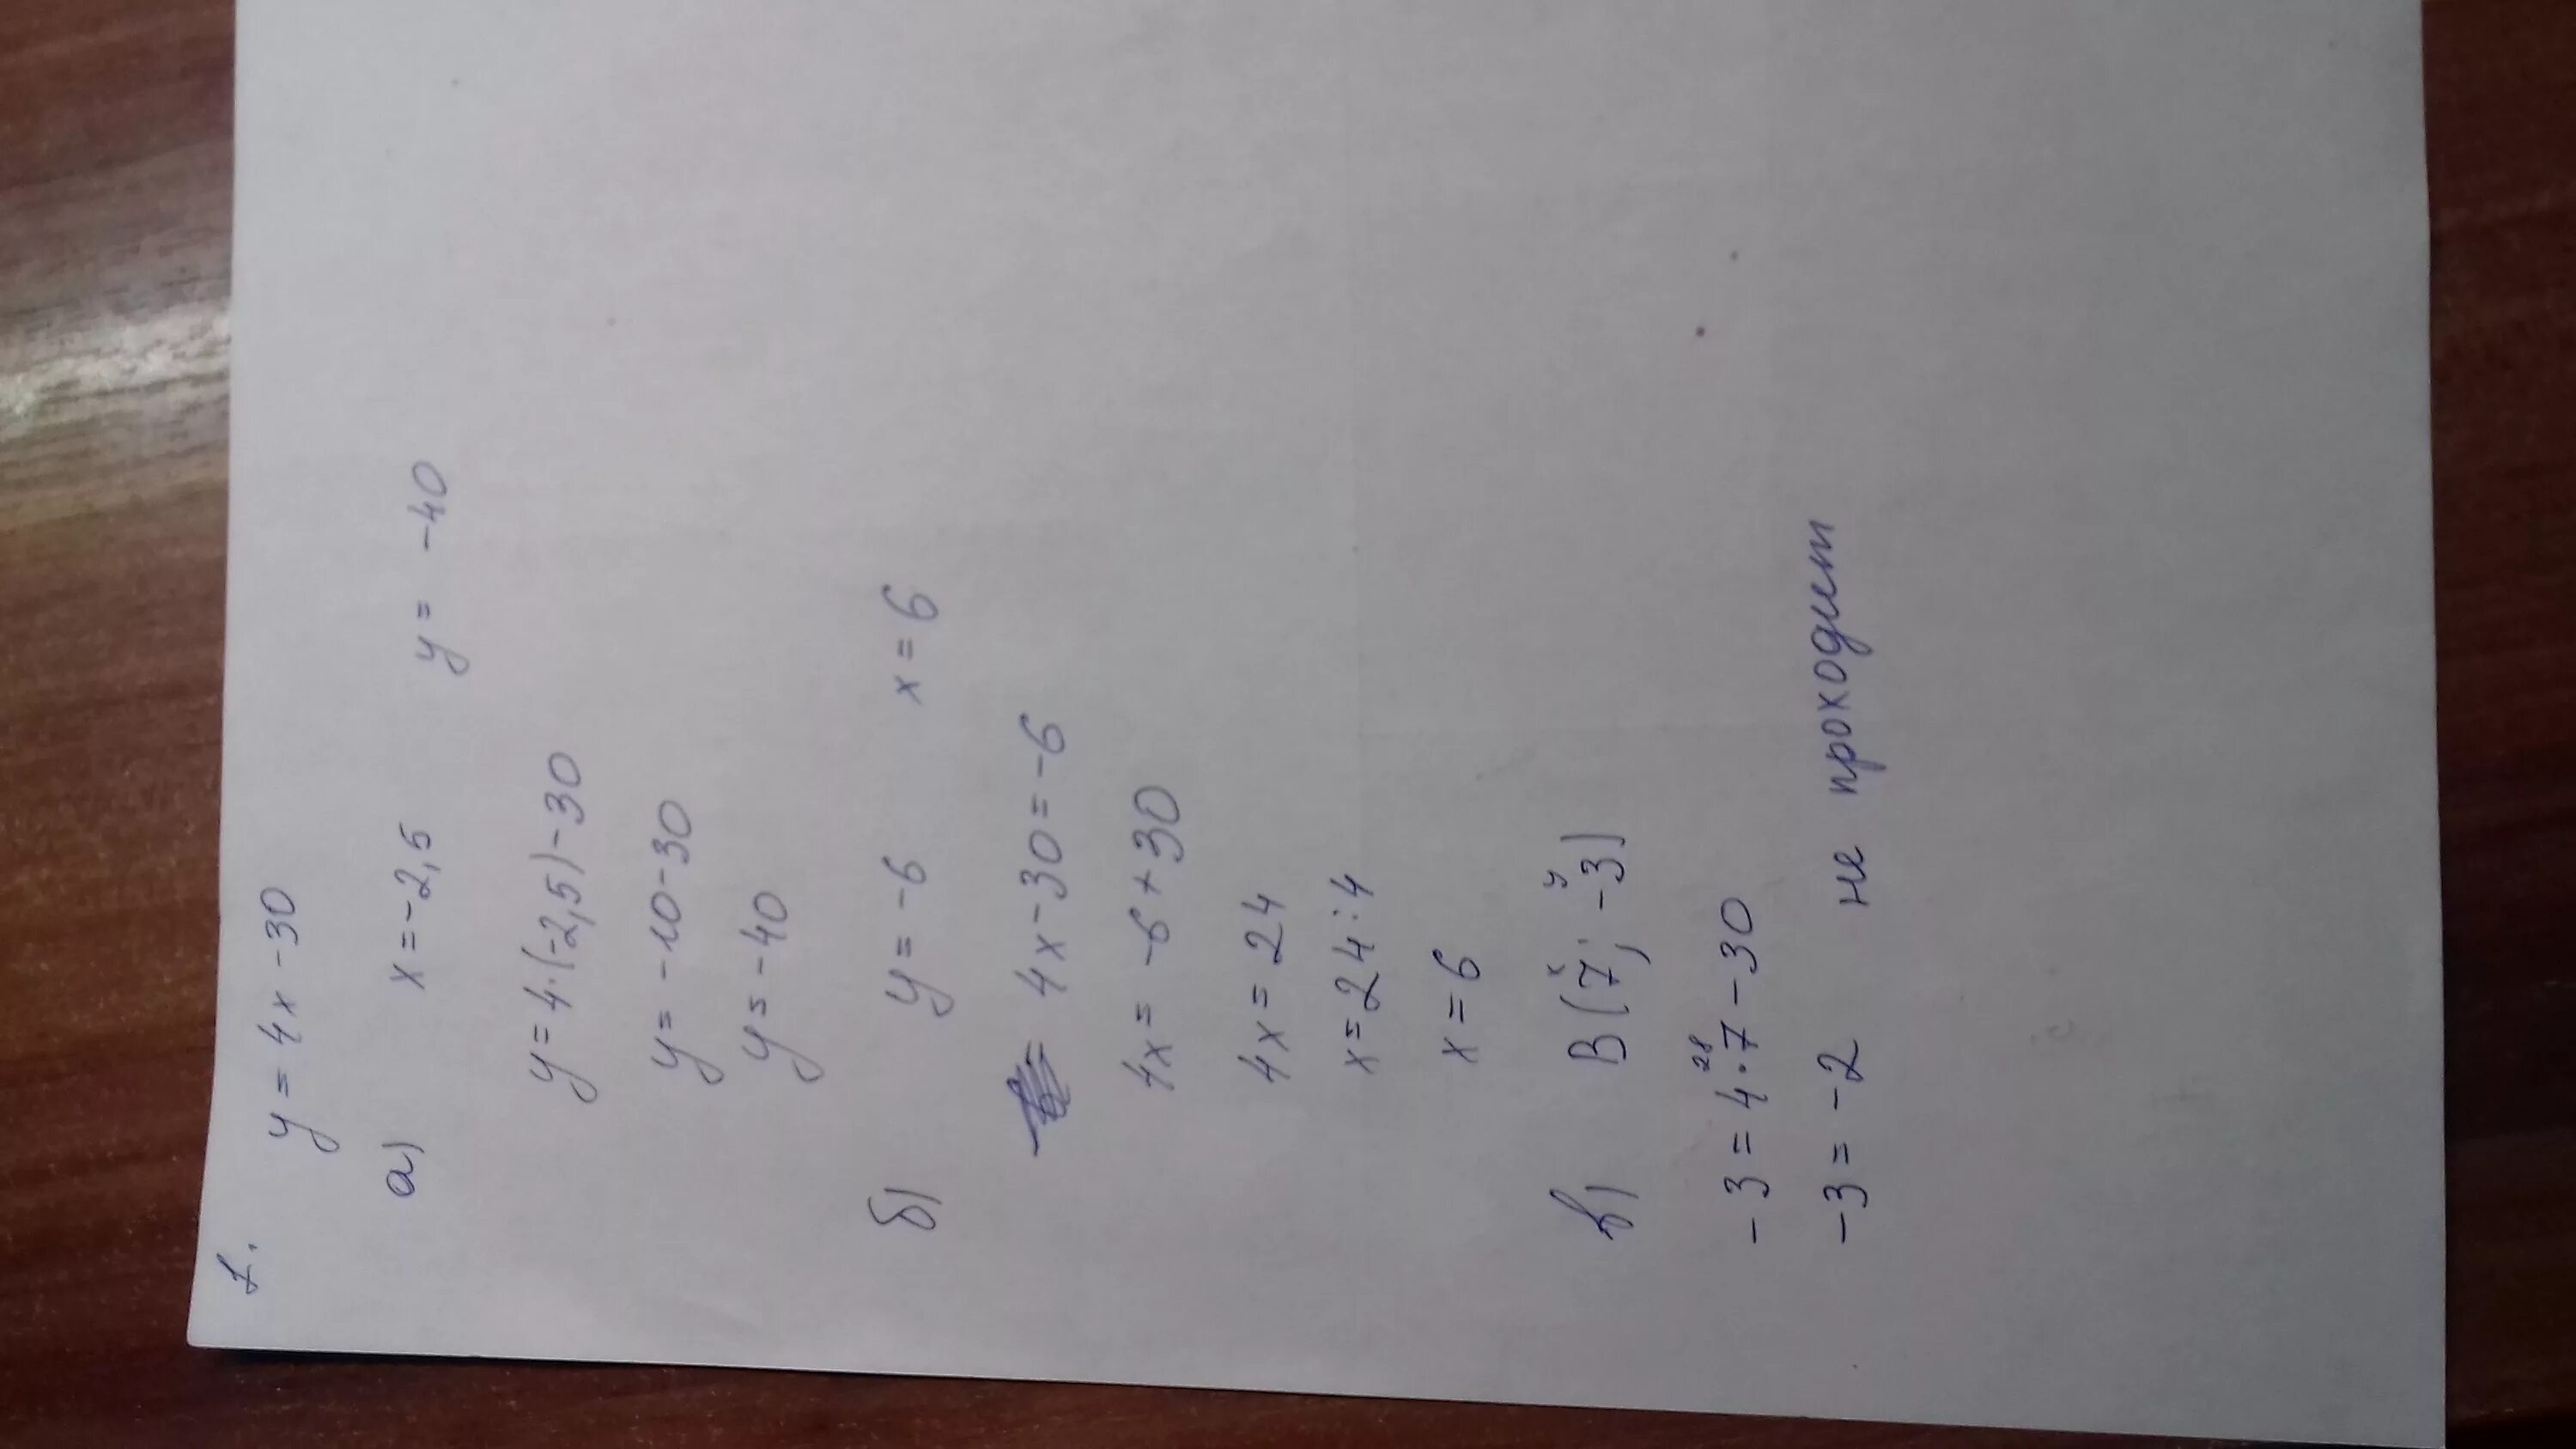 1.
y = 4x - 30
а) x = -2,5 y = -40
y = 4·(-2,5) - 30
y = -10 - 30
y = -40
б) y = -6 x = 6
= 4x - 30 = -6
4x = -6 + 30
4x = 24
x = 24 : 4
x = 6
x y
в) B(7; -3)
28
-3 = 4·7 - 30
-3 = -2 не проходит